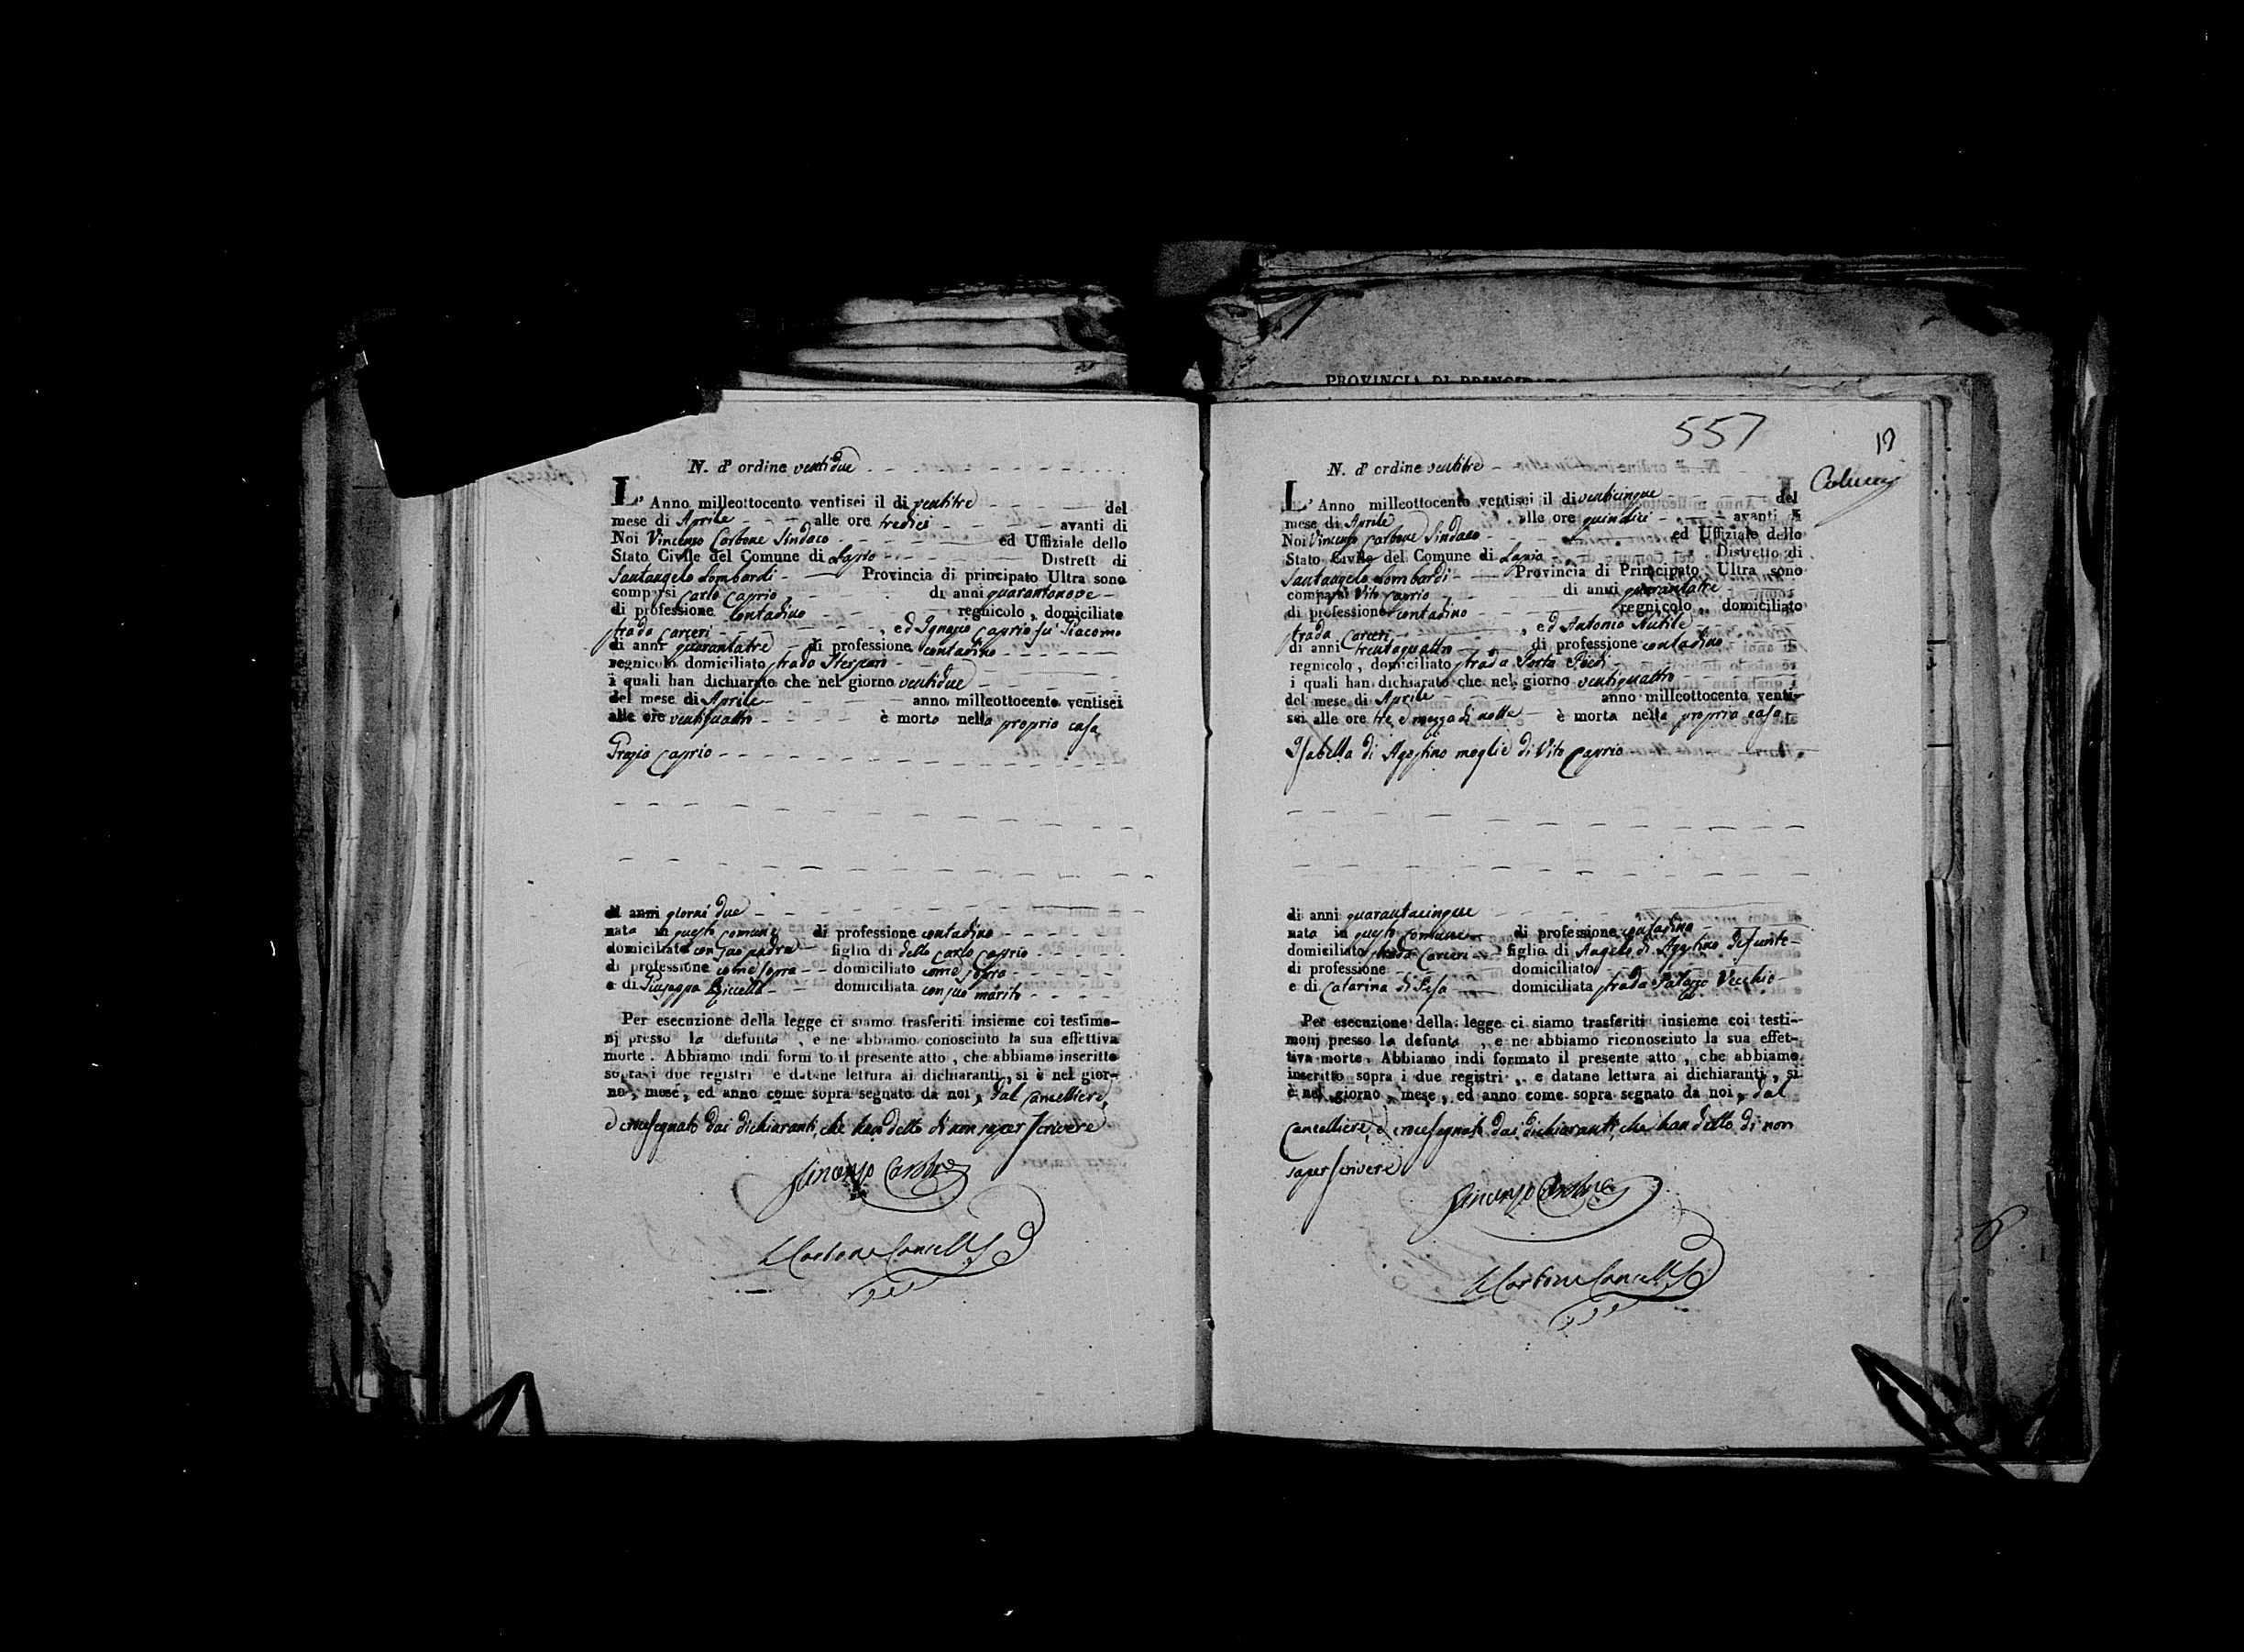 N. d' ordine ventidue
L' Anno milleottocento ventisei il di ventitre del
mese di Aprile alle ore tredici avanti di
Noi Vincenzo Carbone Sindaco ed Uffiziale dello
Stato Civile del Comune di Lapio Distrett di
Santangelo Lombardi Provincia di principato Ultra sono
comparsi Carlo Caprio di anni quarantanove
di professione contadino regnicolo, domiciliato
strada Carceri, ed Ignazio Caprio fu Giacomo
di anni quarantatre di professione contadino
regnicolo domiciliato strada
i quali han dichiarato che nel giorno ventidue
del mese di Aprile anno milleottocento ventisei
alle ore ventiquattro è morto nella propria casa
Grazia Caprio
di anni giorni due
nata in questo Comune di professione contadina
domiciliata con suo padre figlia di detto Carlo Caprio
di professione come sopra domiciliato come sopra
e di Giuseppa domiciliata con suo marito
Per esecuzione della legge ci siamo trasferiti insieme coi testimo-
nj presso la defunta, e ne abbiamo conosciuto la sua effettiva
morte. Abbiamo indi form to il presente atto, che abbiamo inscritto
sopra i due registri e datane lettura ai dichiaranti, si è nel gior-
no, mese, ed anno come sopra segnato da noi, dal Cancelliere,
e crocesegnato dai dichiaranti, che han detto di non saper scrivere
Vincenzo Carbone
Carbone Cancell
PROVINCIA DI PRINCIPATO
557
19
N. d' ordine ventitre
L' Anno milleottocento ventisei il di venticinque del
mese di Aprile alle ore quindici avanti di
Noi Vincenzo Carbone Sindaco ed Uffiziale dello
Stato Civile del Comune di Lapio Distretto di
Santangelo Lombardi Provincia di Principato Ultra sono
comparsi Vito Caprio di anni quarantatre
di professione contadino regnicolo, domiciliato
strada Carceri, ed Antonio Nutile
di anni trentaquattro di professione contadino
regnicolo, domiciliato strada Porta Piedi
i quali han dichiarato che nel giorno ventiquattro
del mese di Aprile anno milleottocento venti-
sei alle ore tre, e mezza di notte è morta nella propria casa
Isabella di Agostino moglie di Vito Caprio
di anni quarantacinque
nata in questo Comune di professione contadina
domiciliata strada Carceri figlia di Angelo di Agostino defunto
di professione domiciliato
e di Catarina di Pesa domiciliata strada Palazzo Vecchio
Per esecuzione della legge ci siamo trasferiti insieme coi testi-
monj presso la defunta, e ne abbiamo riconosciuto la sua effet-
tiva morte. Abbiamo indi formato il presente atto, che abbiamo
inscritto sopra i due registri, e datane lettura ai dichiaranti, si
è nel giorno, mese, ed anno come sopra segnato da noi, dal
Cancelliere, e crocesegnato dai dichiaranti, che han detto di non
saper scrivere
Vincenzo Carbone
Carbone Cancell